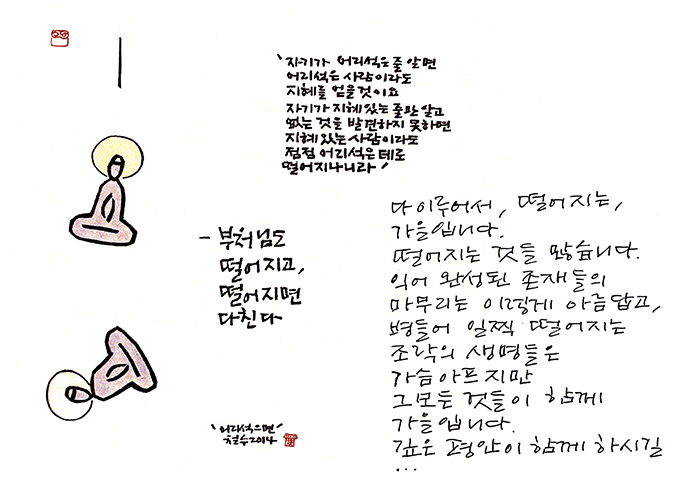 '자기가 어리석은 줄 알면
어리석은 사람이라도
지혜를 얻을 것이요
자기가 지혜 있는 줄만 알고
없는 것을 발견하지 못하면
지혜 있는 사람이라도
점점 어리석은 데로
떨어지나니라'
- 부처님도
떨어지고,
떨어지면
다친다
'어리석으면'
철수 2014
다 이루어서, 떨어지는,
가을입니다.
떨어지는 것들 많습니다.
익어 완성된 존재들의
마무리는 이렇게 아름답고,
병들어 일찍 떨어지는
조락의 생명들은
가슴아프지만
그 모든 것들이 함께
가을입니다.
깊은 평안이 함께 하시길
...